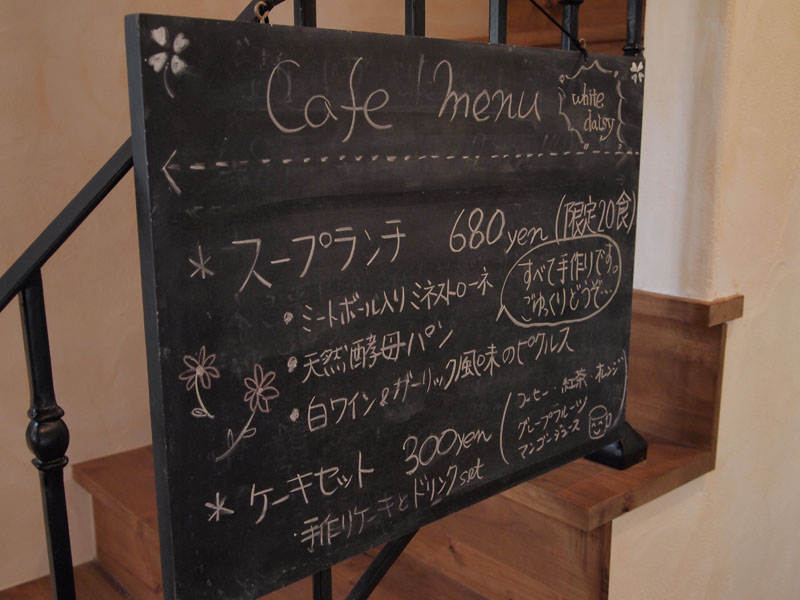 Cafe menu
white
daisy
* スープランチ 680yen (限定20食)
・ミートボール入りミネストローネ
すべて手作りです。
ごゆっくりどうぞ...
・天然酵母パン
・白ワイン&ガーリック風味のピクルス
* ケーキセット 300yen
・手作りケーキとドリンクset
(コーヒー・紅茶・オレンジ
グレープフルーツ
マンゴージュース)